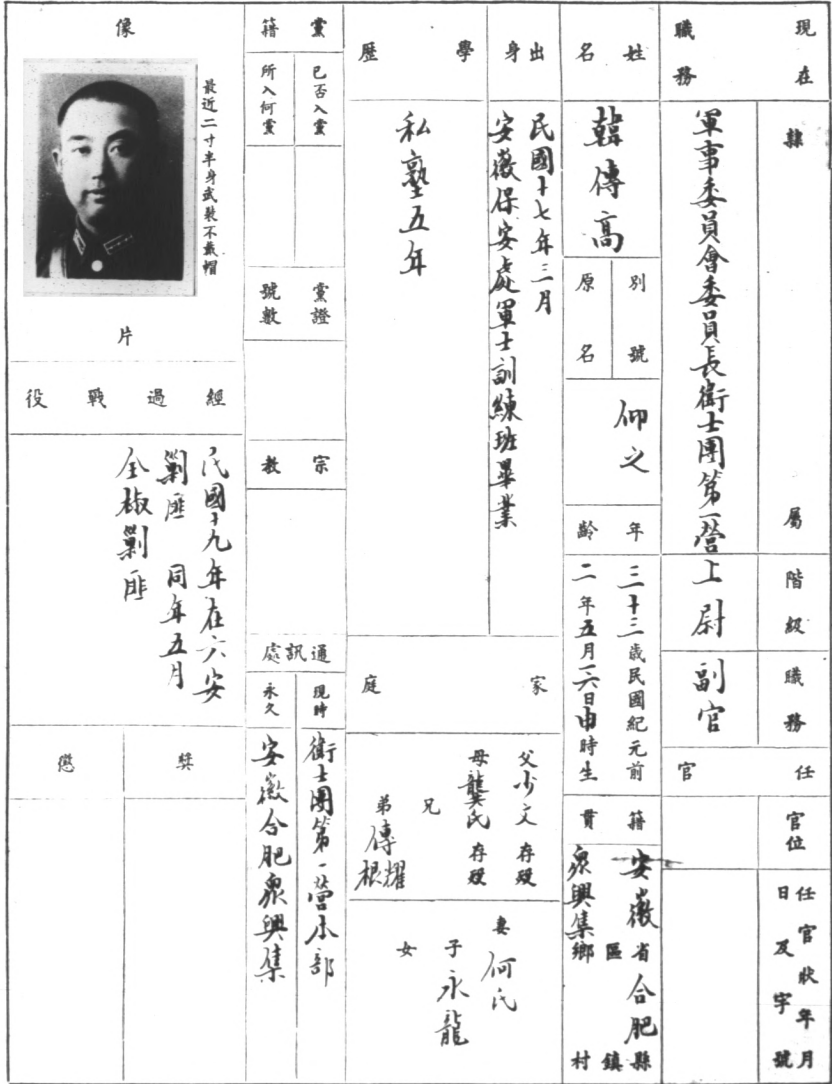 現在職務
隸屬
軍事委員會委員長衛士團第一營
階級
上尉
職務
副官
任官
官位
任官狀年月日及字號
姓名
韓傳高
別號
原名
仰之
年齡
三十三歲民國紀元前
二年五月六日申時生
籍貫
安徽省合肥縣
區鎮
眾興集鄉村
出身
民國十七年三月
安徽保安處軍士訓練班畢業
學歷
私塾五年
家庭
父少文 存歿
母龔氏 存歿
兄
弟傳耀
傳根
妻何氏
子永龍
女
黨籍
已否入黨
所入何黨
黨證號數
宗教
通訊處
現時
衛士團第一營本部
永久
安徽合肥眾興集
像片
最近二寸半身武裝不戴帽
經過戰役
民國十九年在六安
剿匪 同年五月
全椒剿匪
獎
懲